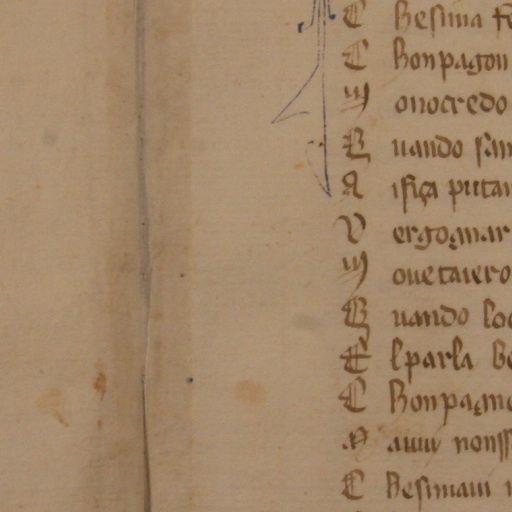 C hesima fe
C honpagon
M onocredo
Q uando san
A ifiça putan
V ergognar
M ouetaiero
Q uando lo
E lparla he
C honpagno
N auiu nonss
C hesimaui